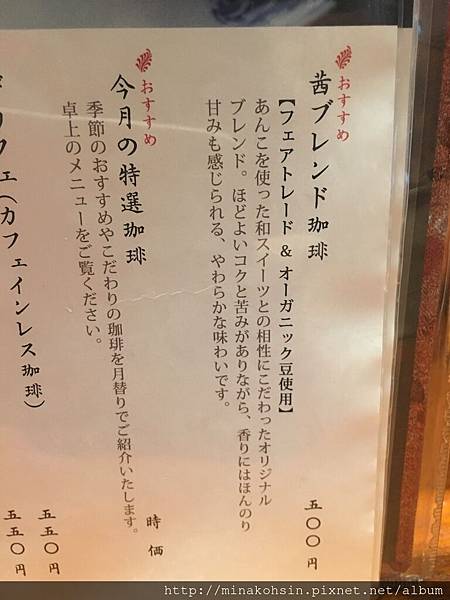 おすすめ
茜ブレンド珈琲
【フェアトレード & オーガニック豆使用】
あんこを使った和スイーツとの相性にこだわったオリジナル
ブレンド。ほどよいコクと苦みがありながら、香りにはほんのり
甘みも感じられる、やわらかな味わいです。
五〇〇円
おすすめ
今月の特選珈琲
季節のおすすめやこだわりの珈琲を月替りでご紹介いたします。
卓上のメニューをご覧ください。
時価
カフェ(カフェインレス珈琲)
五五〇円
五五〇円
http://minakohsin.pixnet.net/album